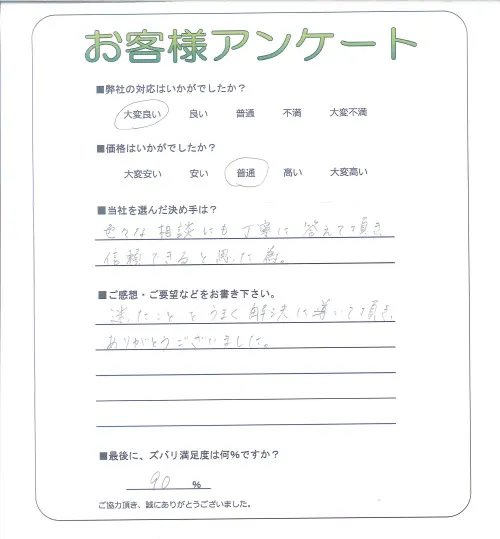 お客様アンケート
■弊社の対応はいかがでしたか？
大変良い 良い 普通 不満 大変不満
■価格はいかがでしたか？
大変安い 安い 普通 高い 大変高い
■当社を選んだ決め手は？
色々な相談にも丁寧に答えて頂き
信頼できると思った為。
■ご感想・ご要望などをお書き下さい。
迷ったことをうまく解決に導いて頂き、
ありがとうございました。
■最後に、ズバリ満足度は何％ですか？
90 ％
ご協力頂き、誠にありがとうございました。